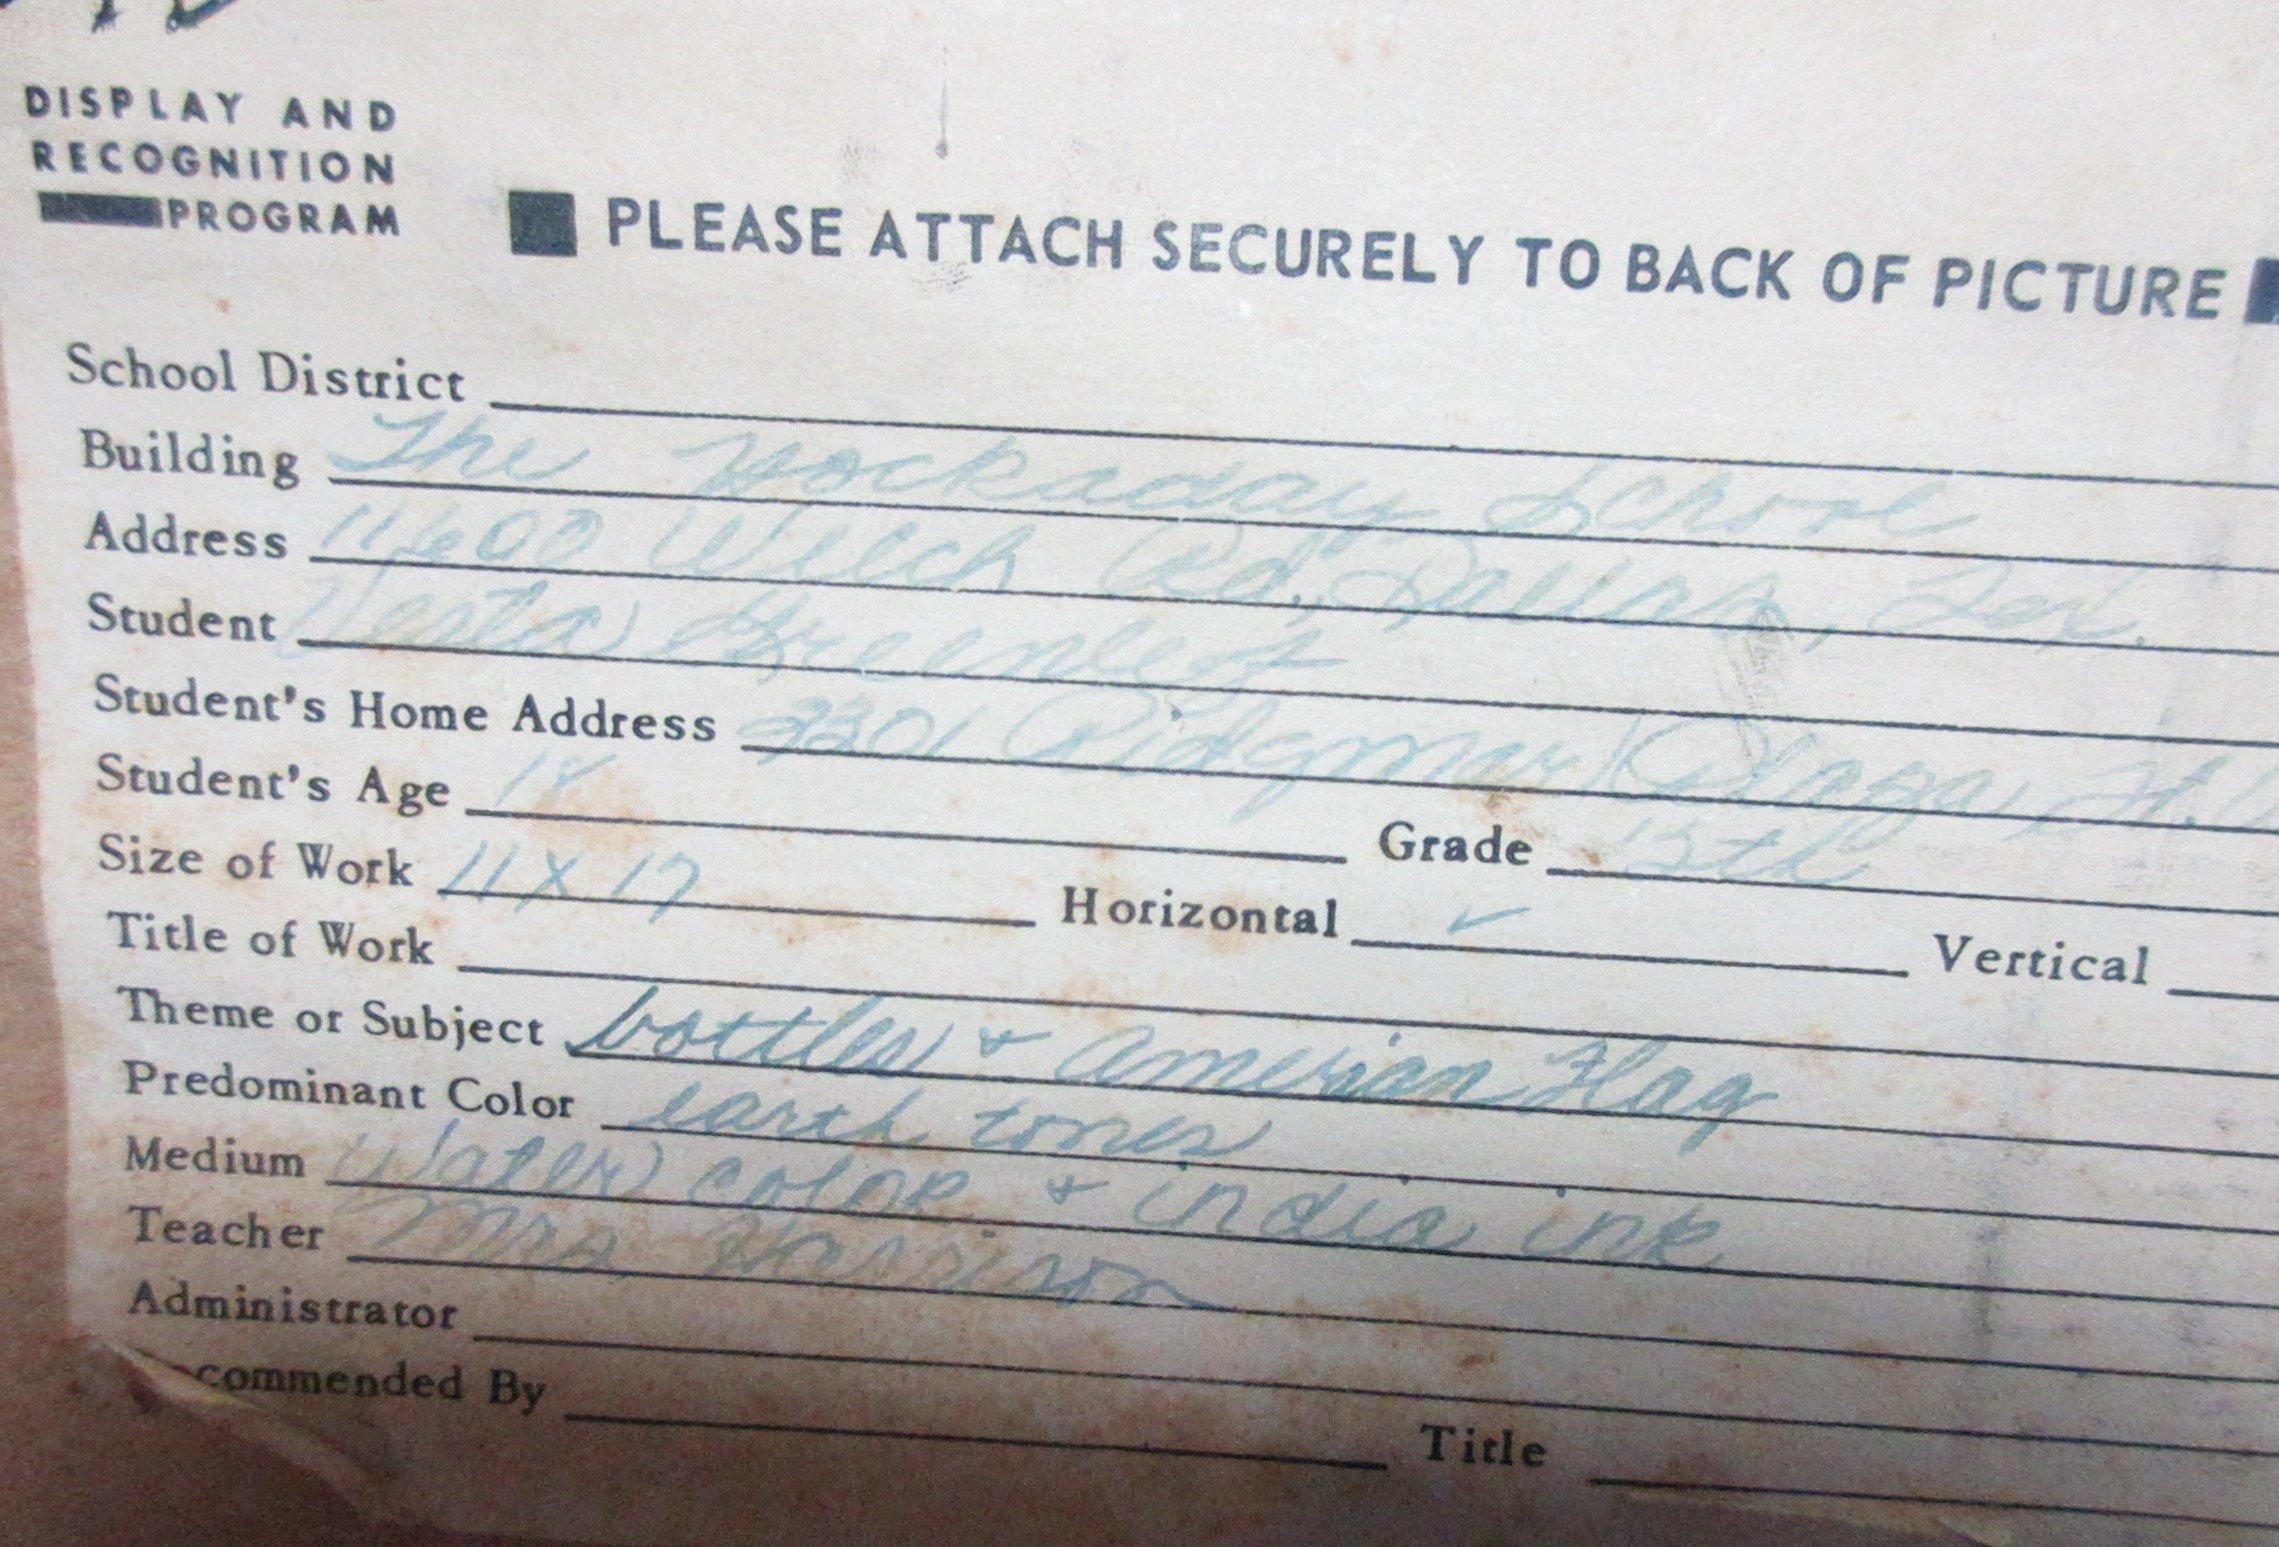 DISPLAY AND
RECOGNITION
PROGRAM
PLEASE ATTACH SECURELY TO BACK OF PICTURE
School District
Building The Hockaday School
Address 11600 Welch Rd., Dallas, Tex.
Student Vesta Greenleaf
Student's Home Address 3301 Ridgmar Plaza, Ft.
Student's Age 18 Grade 13th
Size of Work 11 X 17 Horizontal ✓ Vertical
Title of Work
Theme or Subject bottles & American Flag
Predominant Color earth tones
Medium Water color & india ink
Teacher Mrs Harrison
Administrator
commended By Title